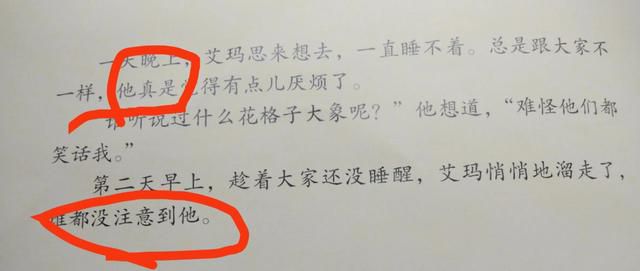 一天晚上，艾玛思来想去，一直睡不着。总是跟大家不
一样，他真是觉得有点儿厌烦了。
“谁听说过什么花格子大象呢？”他想道，“难怪他们都
笑话我。”
第二天早上，趁着大家还没睡醒，艾玛悄悄地溜走了，
谁都没注意到他。